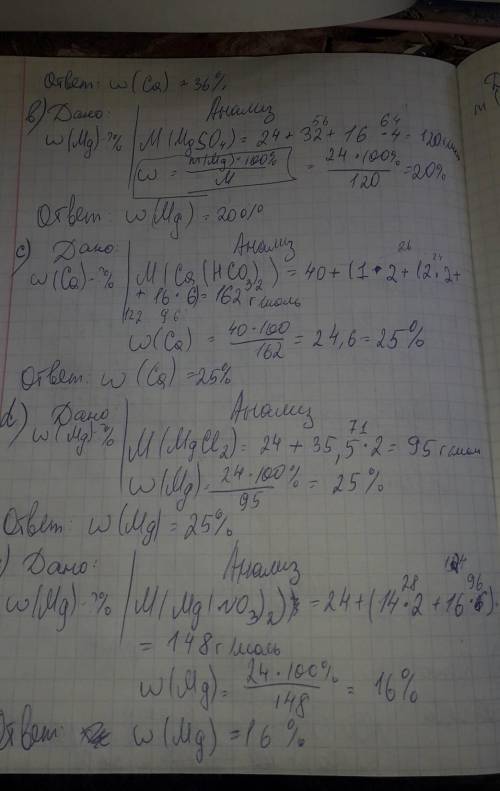 Ответ: w (Ca) = 36%
в) Дано: | Анализ
w (Mg)-?% | M (MgSO4) = 24 + 32 + 16 · 4 = 120 г/моль
56 64
w = m(Mg)·100% / M = 24·100% / 120 = 20%
Ответ: w (Mg) = 20%
c) Дано: | Анализ
w (Ca)-?% | M (Ca(HCO3)2) = 40 + (1·2 + 12·2 +
26 24
+ 16·6) = 162 г/моль
122 96
w (Ca) = 40·100 / 162 = 24,6 = 25%
Ответ: w (Ca) = 25%
d) Дано: | Анализ
w (Mg)-?% | M (MgCl2) = 24 + 35,5·2 = 95 г/моль
71
w (Mg) = 24·100% / 95 = 25%
Ответ: w (Mg) = 25%
) Дано: | Анализ
w (Mg)-?% | M (Mg(NO3)2) = 24 + (14·2 + 16·6)
28 96 124
= 148 г/моль
w (Mg) = 24·100% / 148 = 16%
Ответ: w (Mg) = 16%